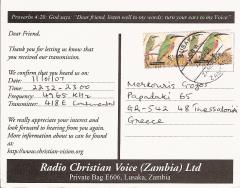 Proverbs 4:20: God says, "Dear friend, listen well to my words; turn your ears to my Voice"
Dear Friend,
Thank you for letting us know that
you received our transmission.
We confirm that you heard us on:
Date: 11/01/07
Time: 2232-2300
Frequency: 4965 KHz
Transmitter: 418E Continental
We really appreciate your interest and
look forward to hearing from you again.
More information about us can be found
at:
http://www.christian-vision.org
Merkouris Gogos
Papadaki 65
GR-542 48 Thessaloniki
Greece
Radio Christian Voice (Zambia) Ltd
Private Bag E606, Lusaka, Zambia